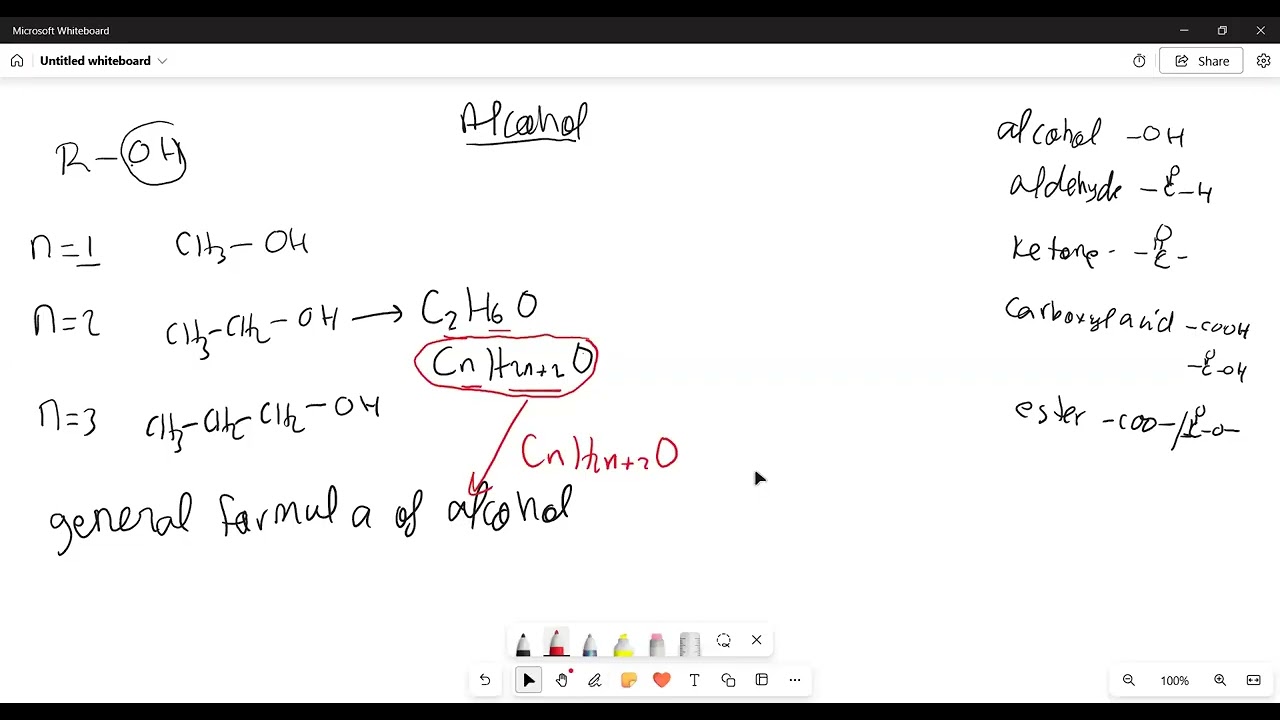 Microsoft Whiteboard
Untitled whiteboard
Share
Alcohol
R-OH
n=1 CH3-OH
n=2 CH3-CH2-OH → C2H6O
CnH2n+2O
n=3 CH3-CH2-CH2-OH
CnH2n+2O
general formula of alcohol
alcohol -OH
aldehyde -C-H
O
Ketone -C-
O
Carboxyl acid -COOH
O
-C-OH
ester -COO-/-C-O-
O
T
100%